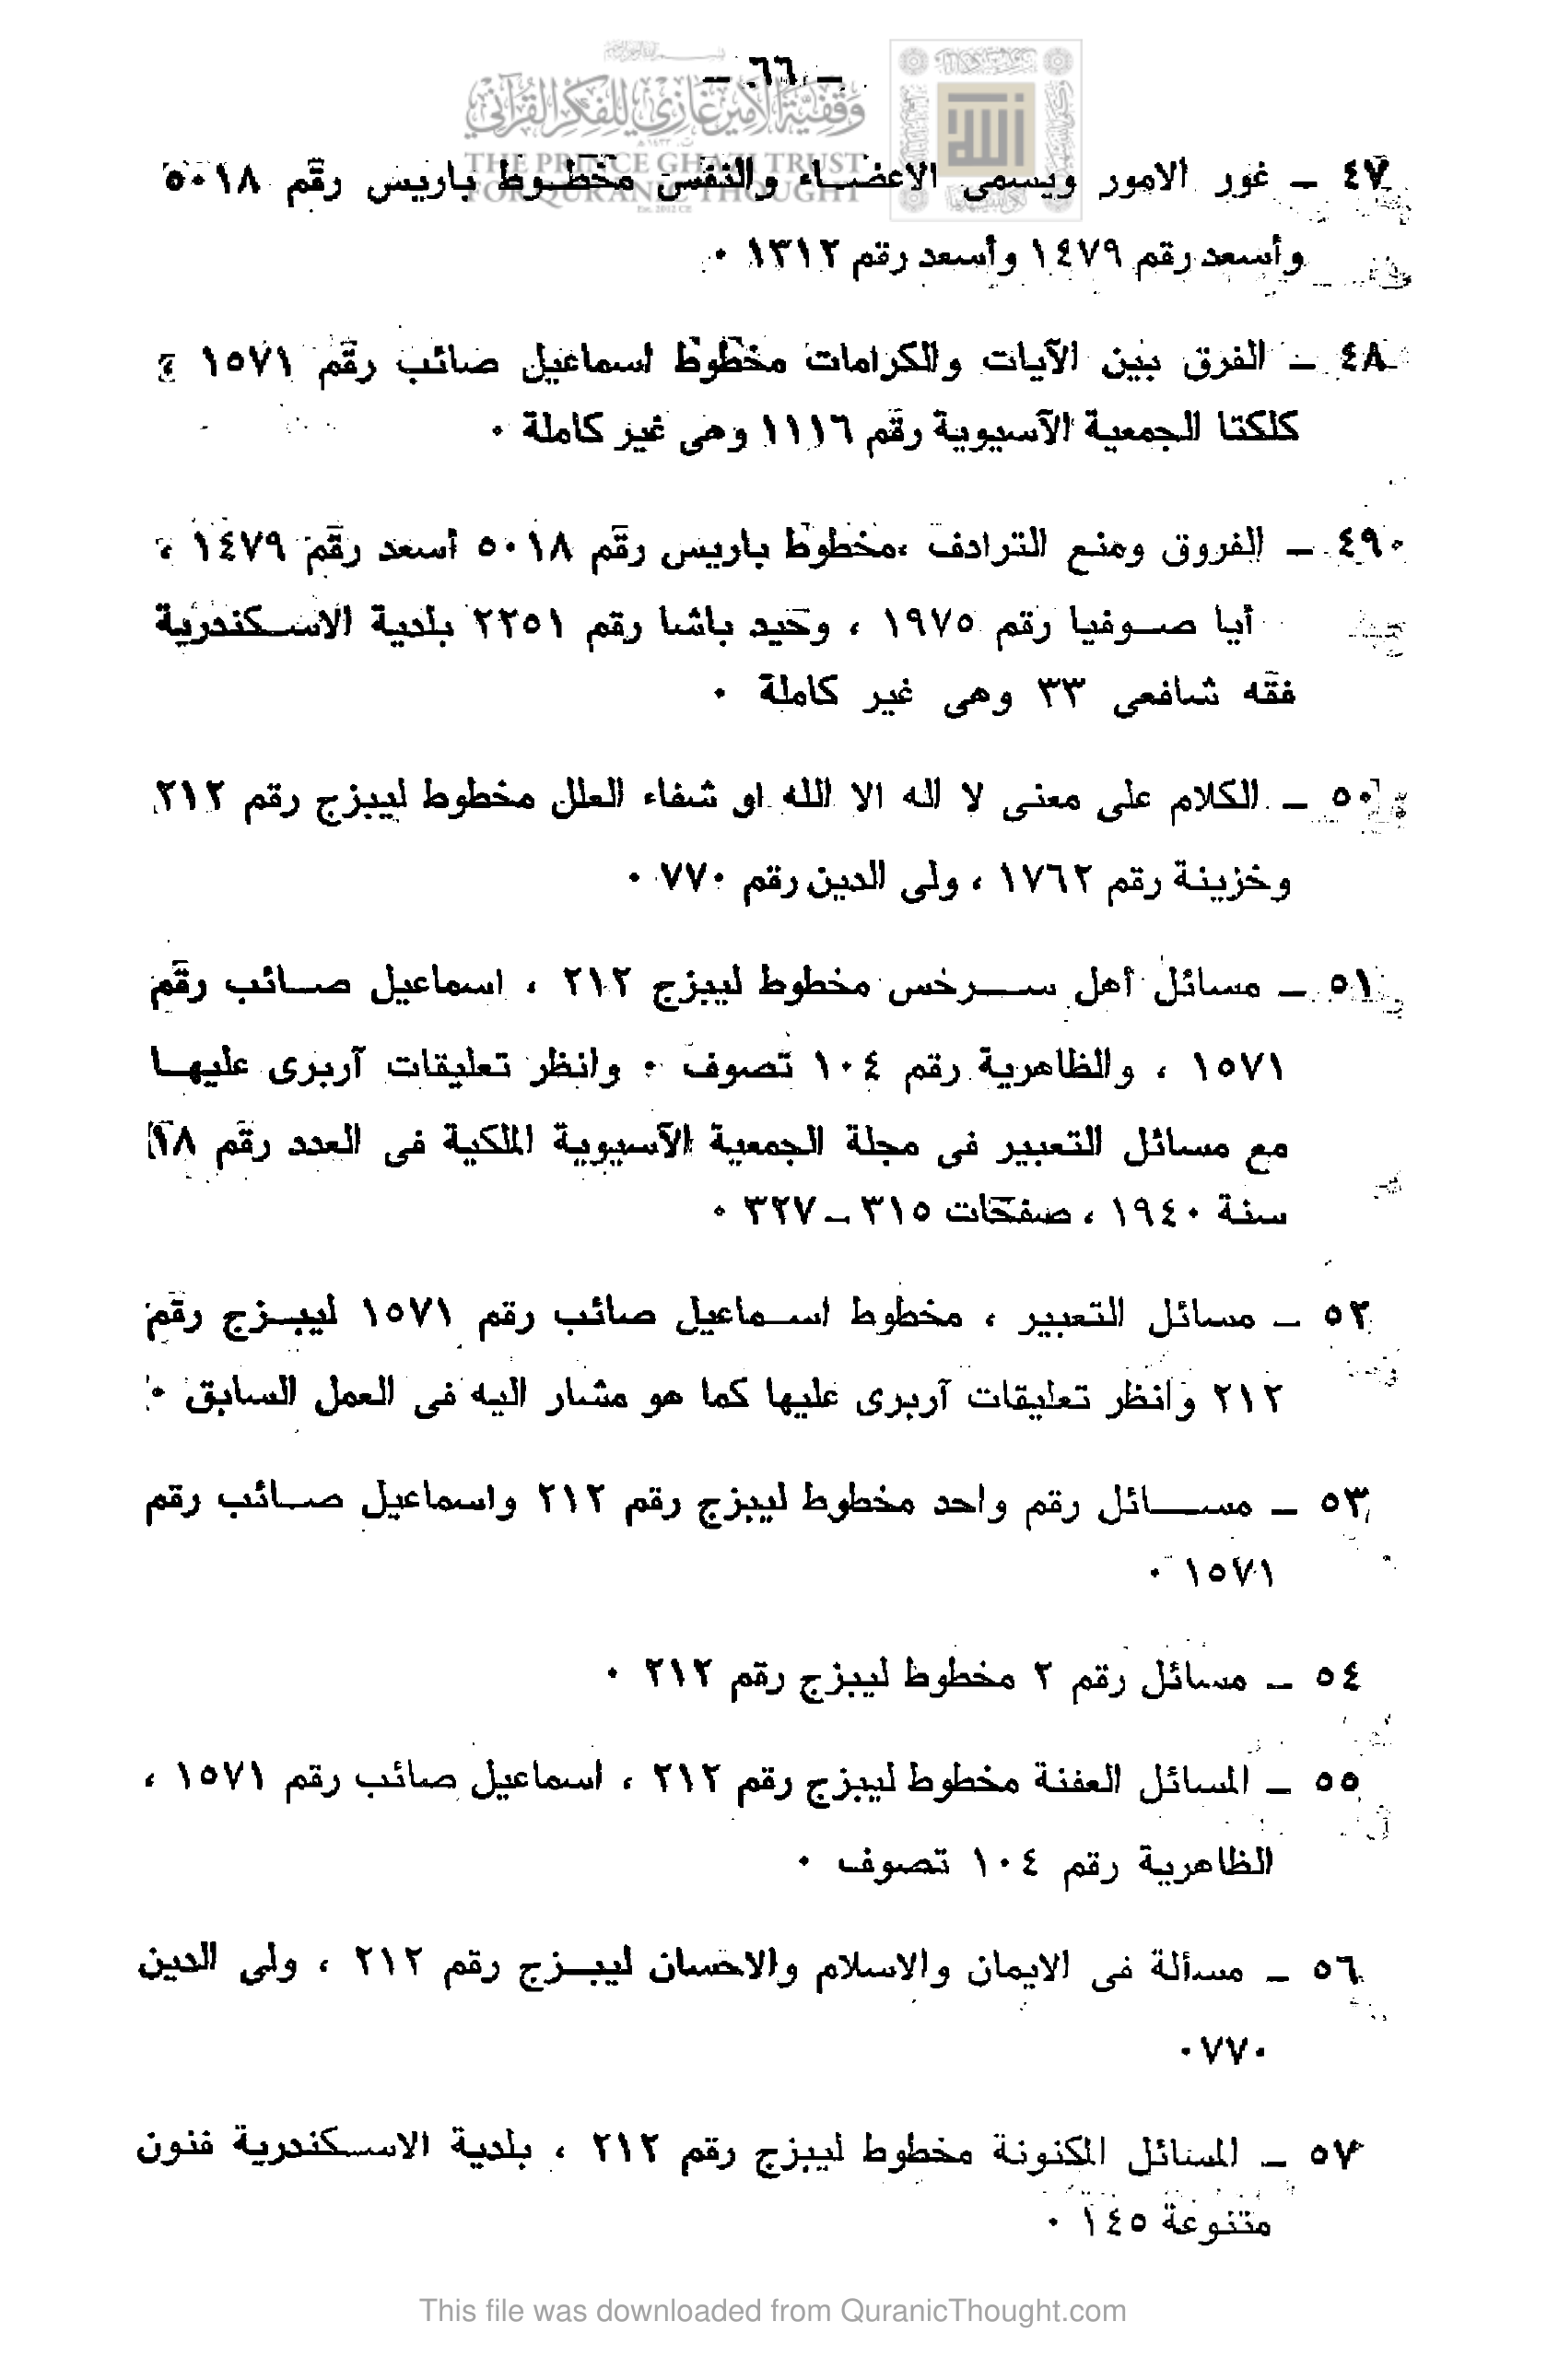 – ٦٦ –
وقفية الأمير غازي للفكر القرآني
THE PRINCE GHAZI TRUST
FOR QURANIC THOUGHT
٤٧ – غور الامور ويسمى الاعضاء والنفس مخطوط باريس رقم ٥٠١٨
وأسعد رقم ١٤٧٩ وأسعد رقم ١٣١٢ ٠
٤٨ – الفرق بين الآيات والكرامات مخطوط اسماعيل صائب رقم ١٥٧١ ،
كلكتا الجمعية الآسيوية رقم ١١١٦ وهى غير كاملة ٠
٤٩ – الفروق ومنع الترادف ،مخطوط باريس رقم ٥٠١٨ أسعد رقم ١٤٧٩ ،
أيا صوفيا رقم ١٩٧٥ ، وحيد باشا رقم ٢٢٥١ بلدية الاسكندرية
فقه شافعى ٣٣ وهى غير كاملة ٠
٥٠ – الكلام على معنى لا اله الا الله او شفاء العلل مخطوط ليبزج رقم ٢١٢
وخزينة رقم ١٧٦٢ ، ولى الدين رقم ٧٧٠ ٠
٥١ – مسائل أهل سرخس مخطوط ليبزج ٢١٢ ، اسماعيل صائب رقم
١٥٧١ ، والظاهرية رقم ١٠٤ تصوف ٠ وانظر تعليقات آربرى عليها
مع مسائل التعبير فى مجلة الجمعية الآسيوية الملكية فى العدد رقم ١٨
سنة ١٩٤٠ ، صفحات ٣١٥ – ٣٢٧ ٠
٥٢ – مسائل التعبير ، مخطوط اسماعيل صائب رقم ١٥٧١ ليبزج رقم
٢١٢ وانظر تعليقات آربرى عليها كما هو مشار اليه فى العمل السابق ٠
٥٣ – مسائل رقم واحد مخطوط ليبزج رقم ٢١٢ واسماعيل صائب رقم
١٥٧١ ٠
٥٤ – مسائل رقم ٢ مخطوط ليبزج رقم ٢١٢ ٠
٥٥ – المسائل العفنة مخطوط ليبزج رقم ٢١٢ ، اسماعيل صائب رقم ١٥٧١ ،
الظاهرية رقم ١٠٤ تصوف ٠
٥٦ – مسألة فى الايمان والاسلام والاحسان ليبزج رقم ٢١٢ ، ولى الدين
٧٧٠ ٠
٥٧ – المسائل المكنونة مخطوط ليبزج رقم ٢١٢ ، بلدية الاسكندرية فنون
متنوعة ١٤٥ ٠
This file was downloaded from QuranicThought.com